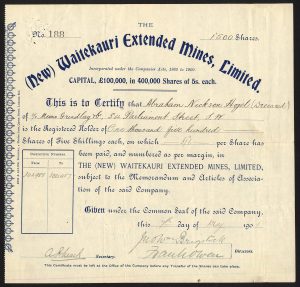 THE
No. 188
1500 Shares.
(New) Waitekauri Extended Mines, Limited.
Incorporated under the Companies Acts, 1862 to 1900.
CAPITAL, £100,000, in 400,000 Shares of 5s. each.
This is to Certify that Abraham
of 54 Parliament Street, S.W.
is the Registered Holder of One thousand five hundred
Shares of Five Shillings each, on which per Share has
been paid, and numbered as per margin, in
THE (NEW) WAITEKAURI EXTENDED MINES, LIMITED,
subject to the Memorandum and Articles of Association
of the said Company.
Given under the Common Seal of the said Company,
this day of May 190
Secretary.
DIRECTORS.
This Certificate must be left at the Office of the Company before any Transfer of the Shares can take place.